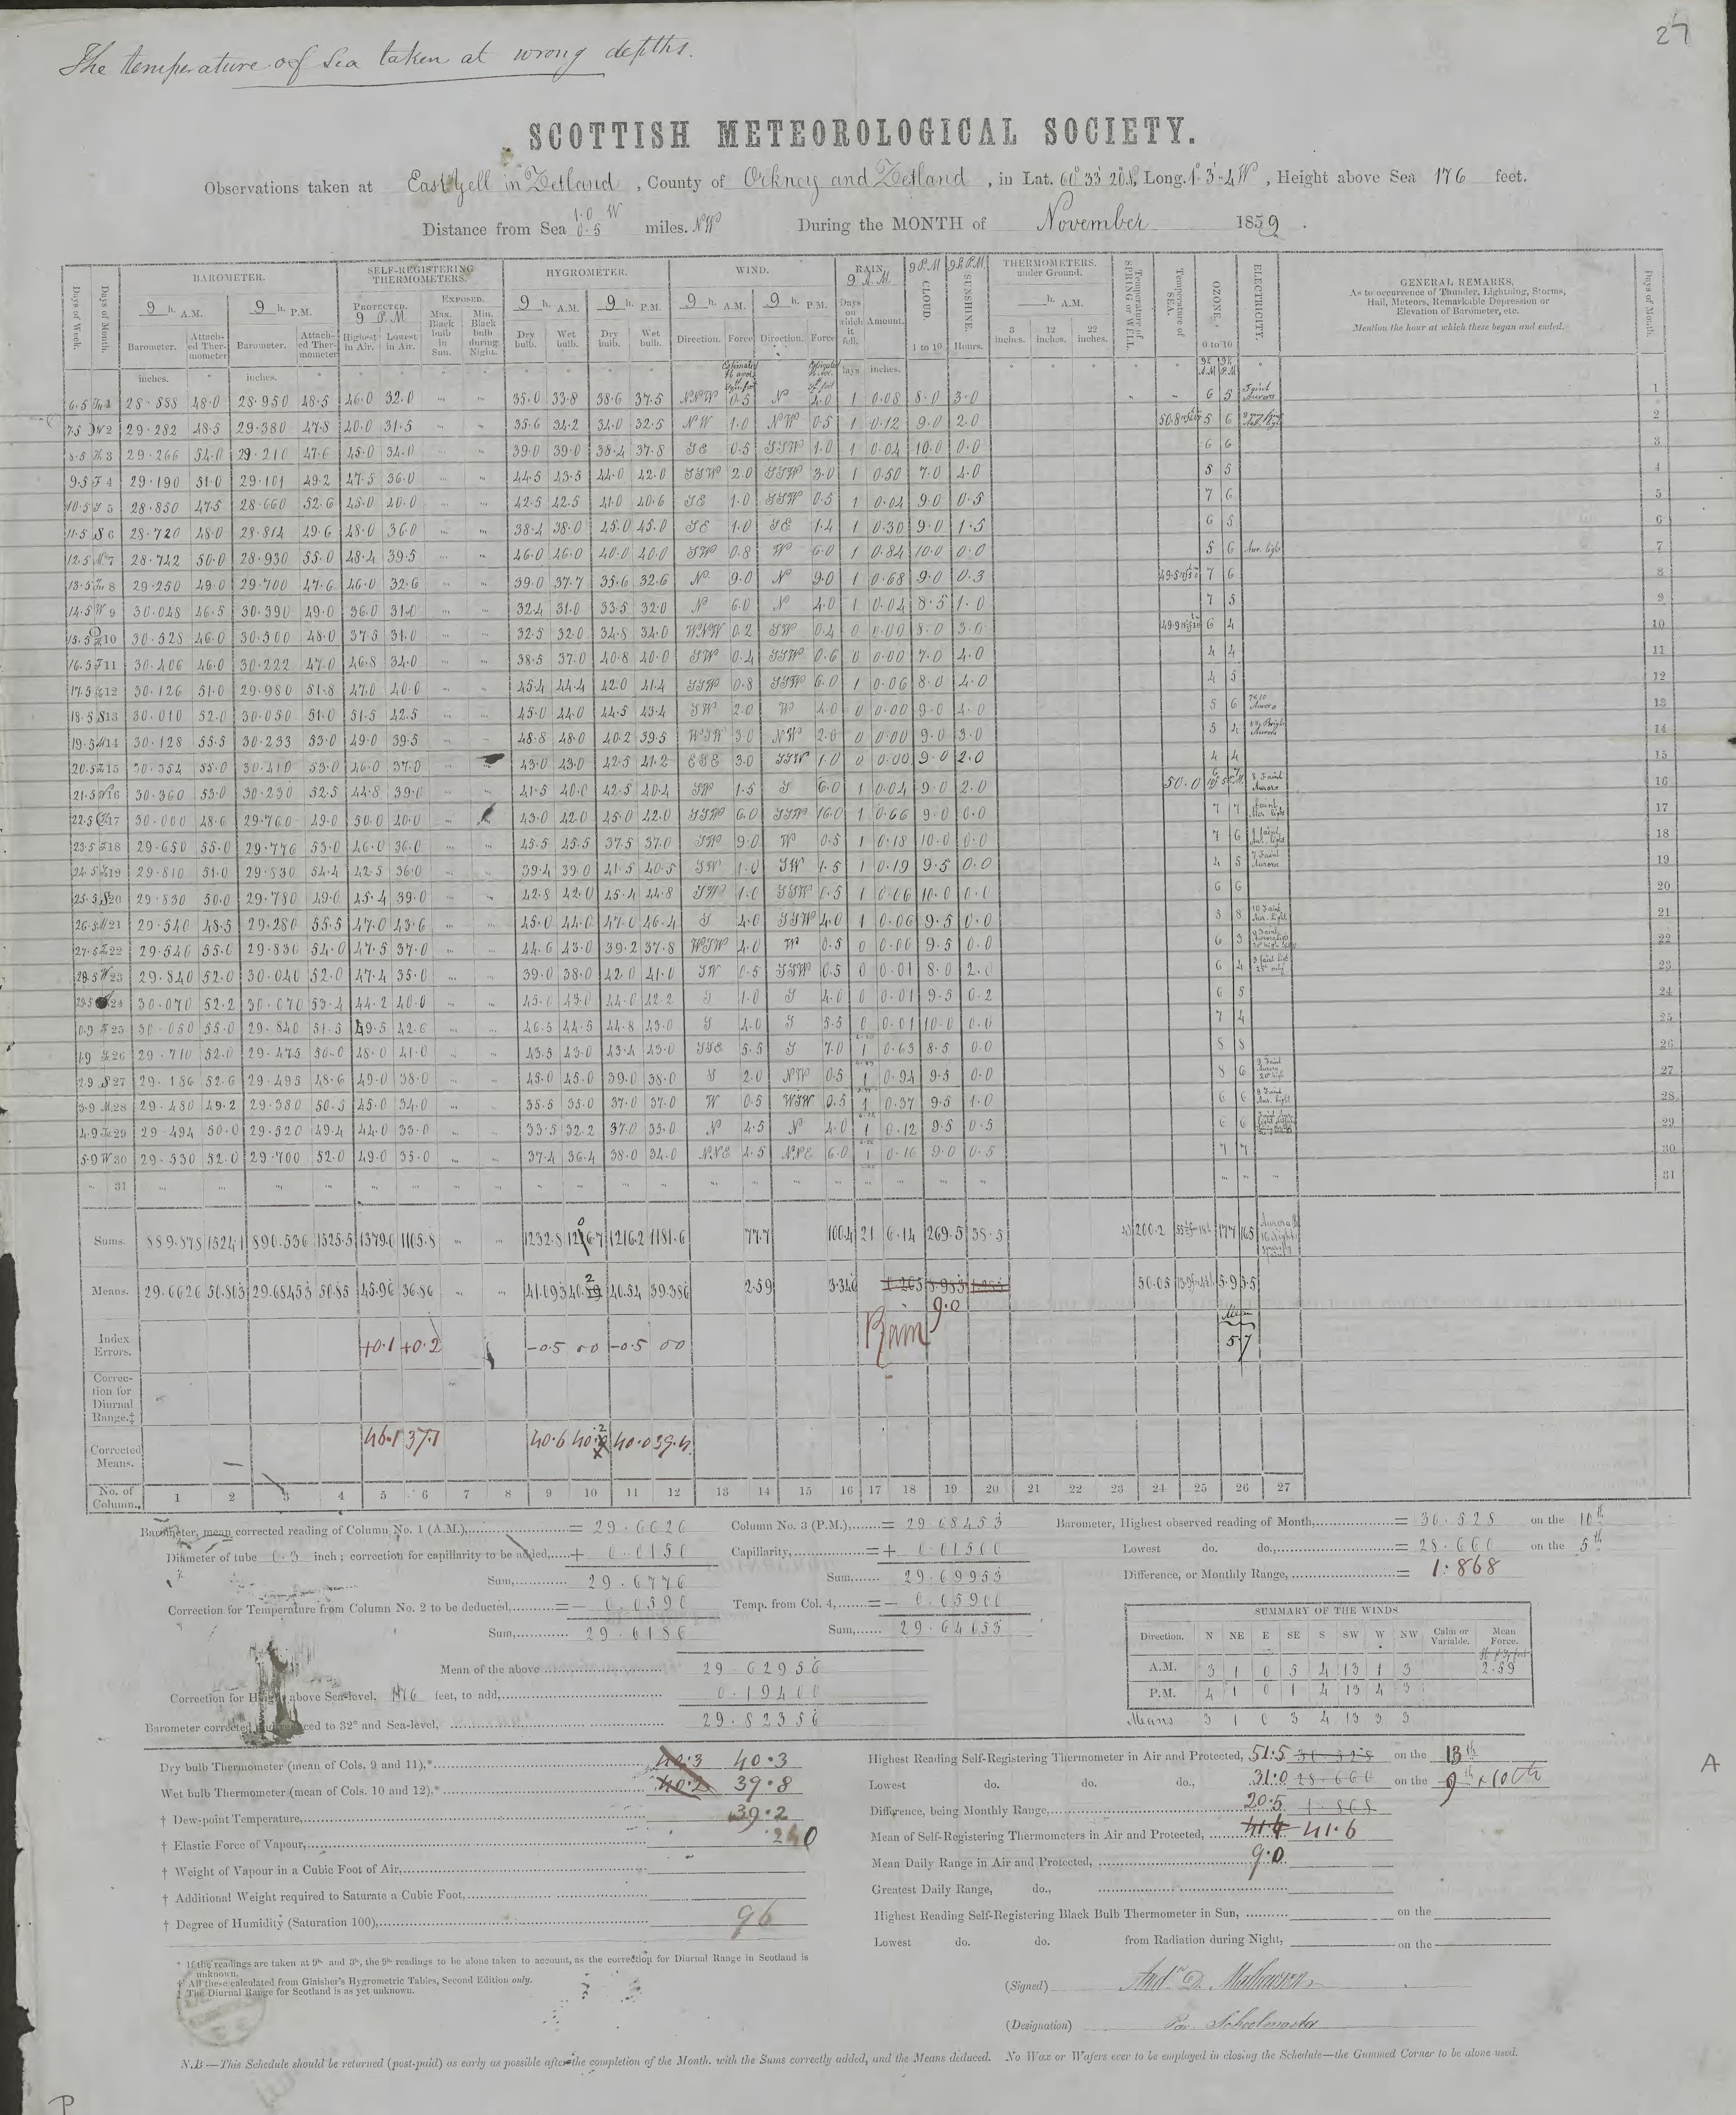 27
The temperature of Sea taken at wrong depths.
SCOTTISH METEOROLOGICAL SOCIETY.
Observations taken at East Yell in Zetland, County of Orkney and Zetland, in Lat. 60° 33' 20" N, Long. 1°-3'-4 W, Height above Sea 176 feet.
1.0 W
Distance from Sea 0.5 miles. NW During the MONTH of November 1859.
Days of Week. Days of Month. BAROMETER. SELF-REGISTERING THERMOMETERS. HYGROMETER. WIND. RAIN. 9 A.M. 9 P.M. CLOUD. 9h P.M. SUNSHINE. THERMOMETERS. under Ground. Temperature of SPRING or WELL. Temperature of SEA. OZONE. ELECTRICITY. GENERAL REMARKS. Days of Month.
As to occurrence of Thunder, Lightning, Storms, Hail, Meteors, Remarkable Depression or Elevation of Barometer, etc.
Mention the hour at which these began and ended.
9 h. A.M. 9 h. P.M. PROTECTED. 9 P.M. EXPOSED. 9 h. A.M. 9 h. P.M. 9 h. A.M. 9 h. P.M. Days on which it fell. Amount. h. A.M.
Barometer. Attached Thermometer Barometer. Attached Thermometer Highest in Air. Lowest in Air. Max. Black bulb in Sun. Min. Black bulb during Night. Dry bulb. Wet bulb. Dry bulb. Wet bulb. Direction. Force Direction. Force 1 to 10 Hours. 3 inches. 12 inches. 22 inches. 0 to 10
inches. ° inches. ° days inches.
6.5 Tu 1 28.888 48.0 28.950 48.5 46.0 32.0 35.0 33.8 38.6 37.5 NNW 0.5 N 4.0 1 0.08 8.0 3.0 6 5 Faint Aurora 1
7.5 W 2 29.282 48.5 29.380 47.8 40.0 31.5 35.6 34.2 34.0 32.5 NW 1.0 NW 0.5 1 0.12 9.0 2.0 50.8 5 6 2
8.5 Th 3 29.266 54.0 29.210 47.6 45.0 34.0 39.0 39.0 38.4 37.8 SE 0.5 SSW 1.0 1 0.04 10.0 0.0 6 6 3
9.5 F 4 29.190 51.0 29.101 49.2 47.5 36.0 44.5 43.5 44.0 42.0 SSW 2.0 SSW 3.0 1 0.50 7.0 4.0 5 5 4
10.5 S 5 28.850 47.5 28.660 52.6 45.0 40.0 42.5 42.5 41.0 40.6 SE 1.0 SSW 0.5 1 0.04 9.0 0.5 7 6 5
11.5 S 6 28.720 48.0 28.814 49.6 48.0 36.0 38.4 38.0 45.0 45.0 SE 1.0 SE 1.4 1 0.30 9.0 1.5 6 5 6
12.5 M 7 28.742 50.0 28.930 55.0 48.4 39.5 46.0 46.0 40.0 40.0 SW 0.8 W 6.0 1 0.84 10.0 0.0 5 6 Aur. light 7
13.5 Tu 8 29.250 49.0 29.700 47.6 46.0 32.6 39.0 37.7 35.6 32.6 N 9.0 N 9.0 1 0.68 9.0 0.3 49.5 7 6 8
14.5 W 9 30.048 46.5 30.390 49.0 36.0 31.0 32.4 31.0 33.5 32.0 N 6.0 N 4.0 1 0.04 8.5 1.0 7 5 9
15.5 10 30.528 46.0 30.500 48.0 37.5 31.0 32.5 32.0 34.8 34.0 WNW 0.2 SW 0.4 0 0.00 8.0 3.0 49.9 6 4 10
16.5 F 11 30.406 46.0 30.222 47.0 46.8 34.0 38.5 37.0 40.8 40.0 SW 0.4 SSW 0.6 0 0.00 7.0 4.0 4 4 11
17.5 S 12 30.126 51.0 29.980 51.8 47.0 40.0 45.4 44.4 42.0 41.4 SSW 0.8 SSW 6.0 1 0.06 8.0 4.0 4 5 12
18.5 S 13 30.010 52.0 30.050 51.0 51.5 42.5 45.0 44.0 44.5 43.4 SW 2.0 W 4.0 0 0.00 9.0 4.0 5 6 Aurora 13
19.5 M 14 30.128 55.5 30.233 53.0 49.0 39.5 48.8 48.0 40.2 39.5 WSW 3.0 NW 2.6 0 0.00 9.0 3.0 5 4 Bright Aurora 14
20.5 Tu 15 30.354 55.0 30.410 53.0 46.0 37.0 43.0 43.0 42.5 41.2 ESE 3.0 SSW 1.0 0 0.00 9.0 2.0 4 4 15
21.5 W 16 30.360 53.0 30.230 52.5 44.8 39.0 41.5 40.0 42.5 40.4 SW 1.5 S 6.0 1 0.04 9.0 2.0 50.0 8 Faint Aurora 16
22.5 Th 17 30.000 48.6 29.760 49.0 50.0 40.0 43.0 42.0 45.0 42.0 SSW 6.0 SSW 16.0 1 0.66 9.0 0.0 7 7 Faint Aur. light 17
23.5 F 18 29.650 55.0 29.776 53.0 46.0 36.0 45.5 45.5 37.5 37.0 SW 9.0 W 0.5 1 0.18 10.0 0.0 7 6 faint Aur. light 18
24.5 S 19 29.810 51.0 29.830 54.4 42.5 36.0 39.4 39.0 41.5 40.5 SW 1.0 SW 1.5 1 0.19 9.5 0.0 4 5 7 Faint Aurora 19
25.5 S 20 29.830 50.0 29.780 49.0 45.4 39.0 42.8 42.0 45.4 44.8 SW 1.0 SSW 0.5 1 0.06 10.0 0.0 6 6 20
26.5 M 21 29.540 48.5 29.280 55.5 47.0 43.6 45.0 44.0 47.0 46.4 S 4.0 SSW 4.0 1 0.06 9.5 0.0 8 8 10 Faint Aur. light 21
27.5 Tu 22 29.546 55.0 29.830 54.0 47.5 37.0 44.6 43.0 39.2 37.8 WSW 4.0 W 0.5 0 0.00 9.5 0.0 6 3 22
28.5 W 23 29.840 52.0 30.040 52.0 47.4 35.0 39.0 38.0 42.0 41.0 SW 0.5 SSW 0.5 0 0.01 8.0 2.0 6 4 23
29.5 24 30.070 52.2 30.070 53.4 44.2 40.0 45.0 43.0 44.0 42.2 S 1.0 S 4.0 0 0.01 9.5 0.2 6 5 24
0.9 F 25 30.050 55.0 29.840 51.3 49.5 42.6 46.5 44.5 44.8 43.0 S 4.0 S 5.5 0 0.01 10.0 0.0 7 4 25
1.9 S 26 29.710 52.0 29.475 50.0 48.0 41.0 43.5 43.0 43.4 43.0 SSE 5.5 S 7.0 1 0.63 8.5 0.0 8 8 26
2.9 S 27 29.186 52.6 29.495 48.6 49.0 38.0 45.0 45.0 39.0 38.0 S 2.0 NW 0.5 1 0.94 9.5 0.0 8 6 27
3.9 M 28 29.480 49.2 29.380 50.5 45.0 34.0 35.5 35.0 37.0 37.0 W 0.5 WSW 0.5 1 0.37 9.5 1.0 6 6 28
4.9 Tu 29 29.494 50.0 29.520 49.4 44.0 33.0 33.5 32.2 37.0 35.0 N 4.5 N 4.0 1 0.12 9.5 0.5 6 6 29
5.9 W 30 29.530 52.0 29.700 52.0 49.0 35.0 37.4 36.4 38.0 34.0 NNE 4.5 NNE 6.0 1 0.16 9.0 0.5 7 7 30
31 31
Sums. 889.878 1524.1 890.536 1525.5 1379.0 1105.8 1232.8 1216.2 1181.6 77.7 100.4 21 6.14 269.5 38.5 200.2 177 165
Means. 29.6626 50.803 29.68453 50.85 45.96 36.86 41.093 40.54 39.386 2.59 3.346 0.205 8.983 9.0 50.05 5.9 5.5
Index Errors. +0.1 +0.2 -0.5 00 -0.5 00 Rain Mean 5.7
Correction for Diurnal Range.‡
Corrected Means. 46.1 37.1 40.6 40.2 40.0 39.4
No. of Column. 1 2 3 4 5 6 7 8 9 10 11 12 13 14 15 16 17 18 19 20 21 22 23 24 25 26 27
Barometer, mean corrected reading of Column No. 1 (A.M.), = 29.6626 Column No. 3 (P.M.), = 29.68453 Barometer, Highest observed reading of Month, = 30.528 on the 10th
Diameter of tube 0.3 inch; correction for capillarity to be added, + 0.0150 Capillarity, = + 0.01500 Lowest do. do., = 28.660 on the 5th
Sum, 29.6776 Sum, 29.69953 Difference, or Monthly Range, = 1.868
Correction for Temperature from Column No. 2 to be deducted, = - 0.0590 Temp. from Col. 4, = - 0.05900
Sum, 29.6186 Sum, 29.64053
SUMMARY OF THE WINDS
Direction. N NE E SE S SW W NW Calm or Variable. Mean Force.
A.M. 3 1 0 5 4 13 1 3 2.59
P.M. 4 1 0 1 4 13 4 3
Means 3 1 0 3 4 13 3 3
Mean of the above 29.62956
Correction for Height above Sea-level, 176 feet, to add, 0.19400
Barometer corrected and reduced to 32° and Sea-level, 29.82356
Dry bulb Thermometer (mean of Cols. 9 and 11),* 40.3 40.3
Wet bulb Thermometer (mean of Cols. 10 and 12),* 40.2 39.8
† Dew-point Temperature, 39.2
† Elastic Force of Vapour, .240
† Weight of Vapour in a Cubic Foot of Air,
† Additional Weight required to Saturate a Cubic Foot,
† Degree of Humidity (Saturation 100), 96
Highest Reading Self-Registering Thermometer in Air and Protected, 51.5 30.528 on the 13th
Lowest do. do. do., 31.0 28.660 on the 9th & 10th
Difference, being Monthly Range, 20.5 1.868
Mean of Self-Registering Thermometers in Air and Protected, 41.4 41.6
Mean Daily Range in Air and Protected, 9.0
Greatest Daily Range, do.,
Highest Reading Self-Registering Black Bulb Thermometer in Sun, on the
Lowest do. do. from Radiation during Night, on the
A
* If the readings are taken at 9h and 3h, the 9h readings to be alone taken to account, as the correction for Diurnal Range in Scotland is unknown.
† All these calculated from Glaisher's Hygrometric Tables, Second Edition only.
‡ The Diurnal Range for Scotland is as yet unknown.
(Signed) Andw D. Mathewson
(Designation) Par. Schoolmaster
N.B—This Schedule should be returned (post-paid) as early as possible after the completion of the Month, with the Sums correctly added, and the Means deduced. No Wax or Wafers ever to be employed in closing the Schedule—the Gummed Corner to be alone used.
P